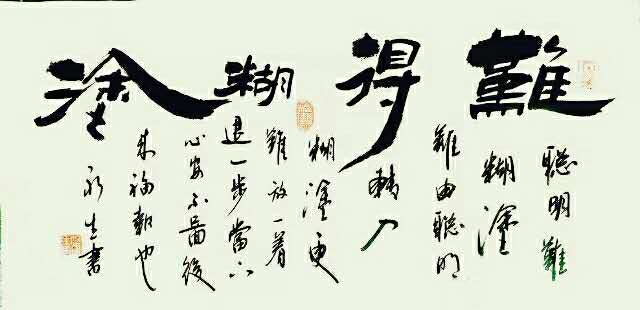 難得糊塗
聰明難
糊塗
難由聰明
轉入
糊塗更
難放一着
退一步當下
心安不圖後
来福報也
永生書